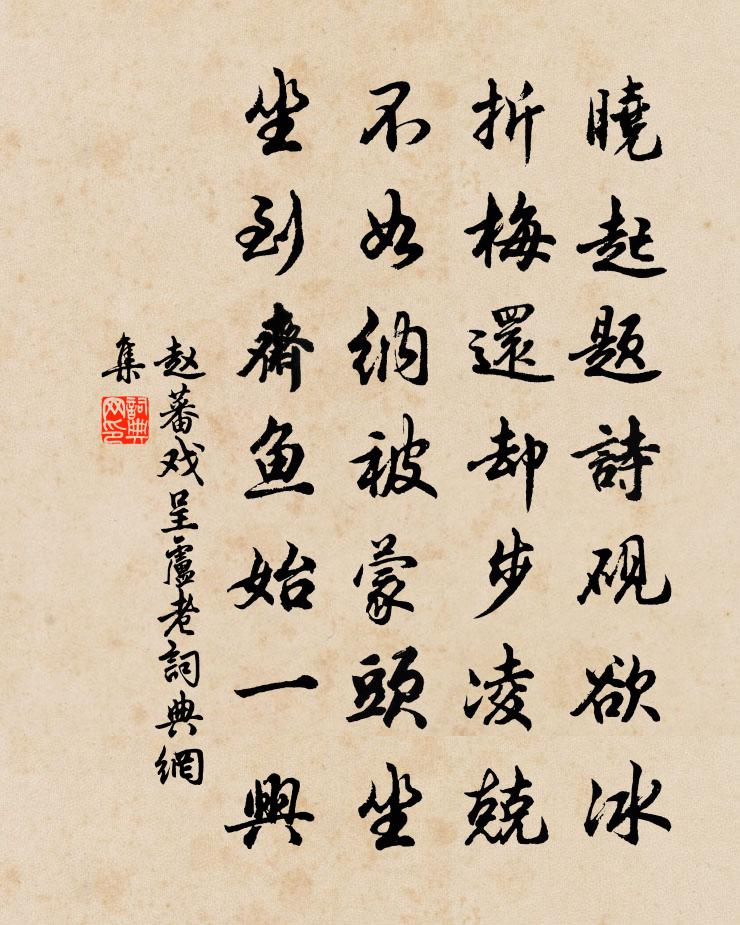 曉起題詩硯欲冰
折梅還却步凌兢
不如納被蒙頭坐
坐到齋魚始一興
赵蕃戏呈盧老詞典網
集
詞典网印